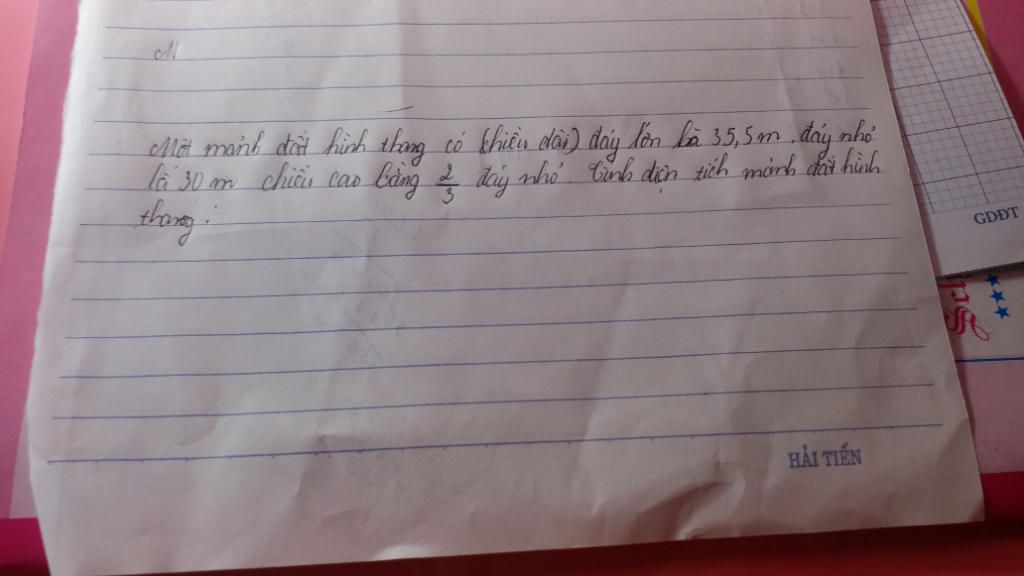 M
Một mảnh đất hình thang có (chiều dài) đáy lớn là 35,5 m. đáy nhỏ
là 30 m chiều cao bằng 2/3 đáy nhỏ. Tính diện tích mảnh đất hình
thang:
GDĐT
HẢI TIẾN